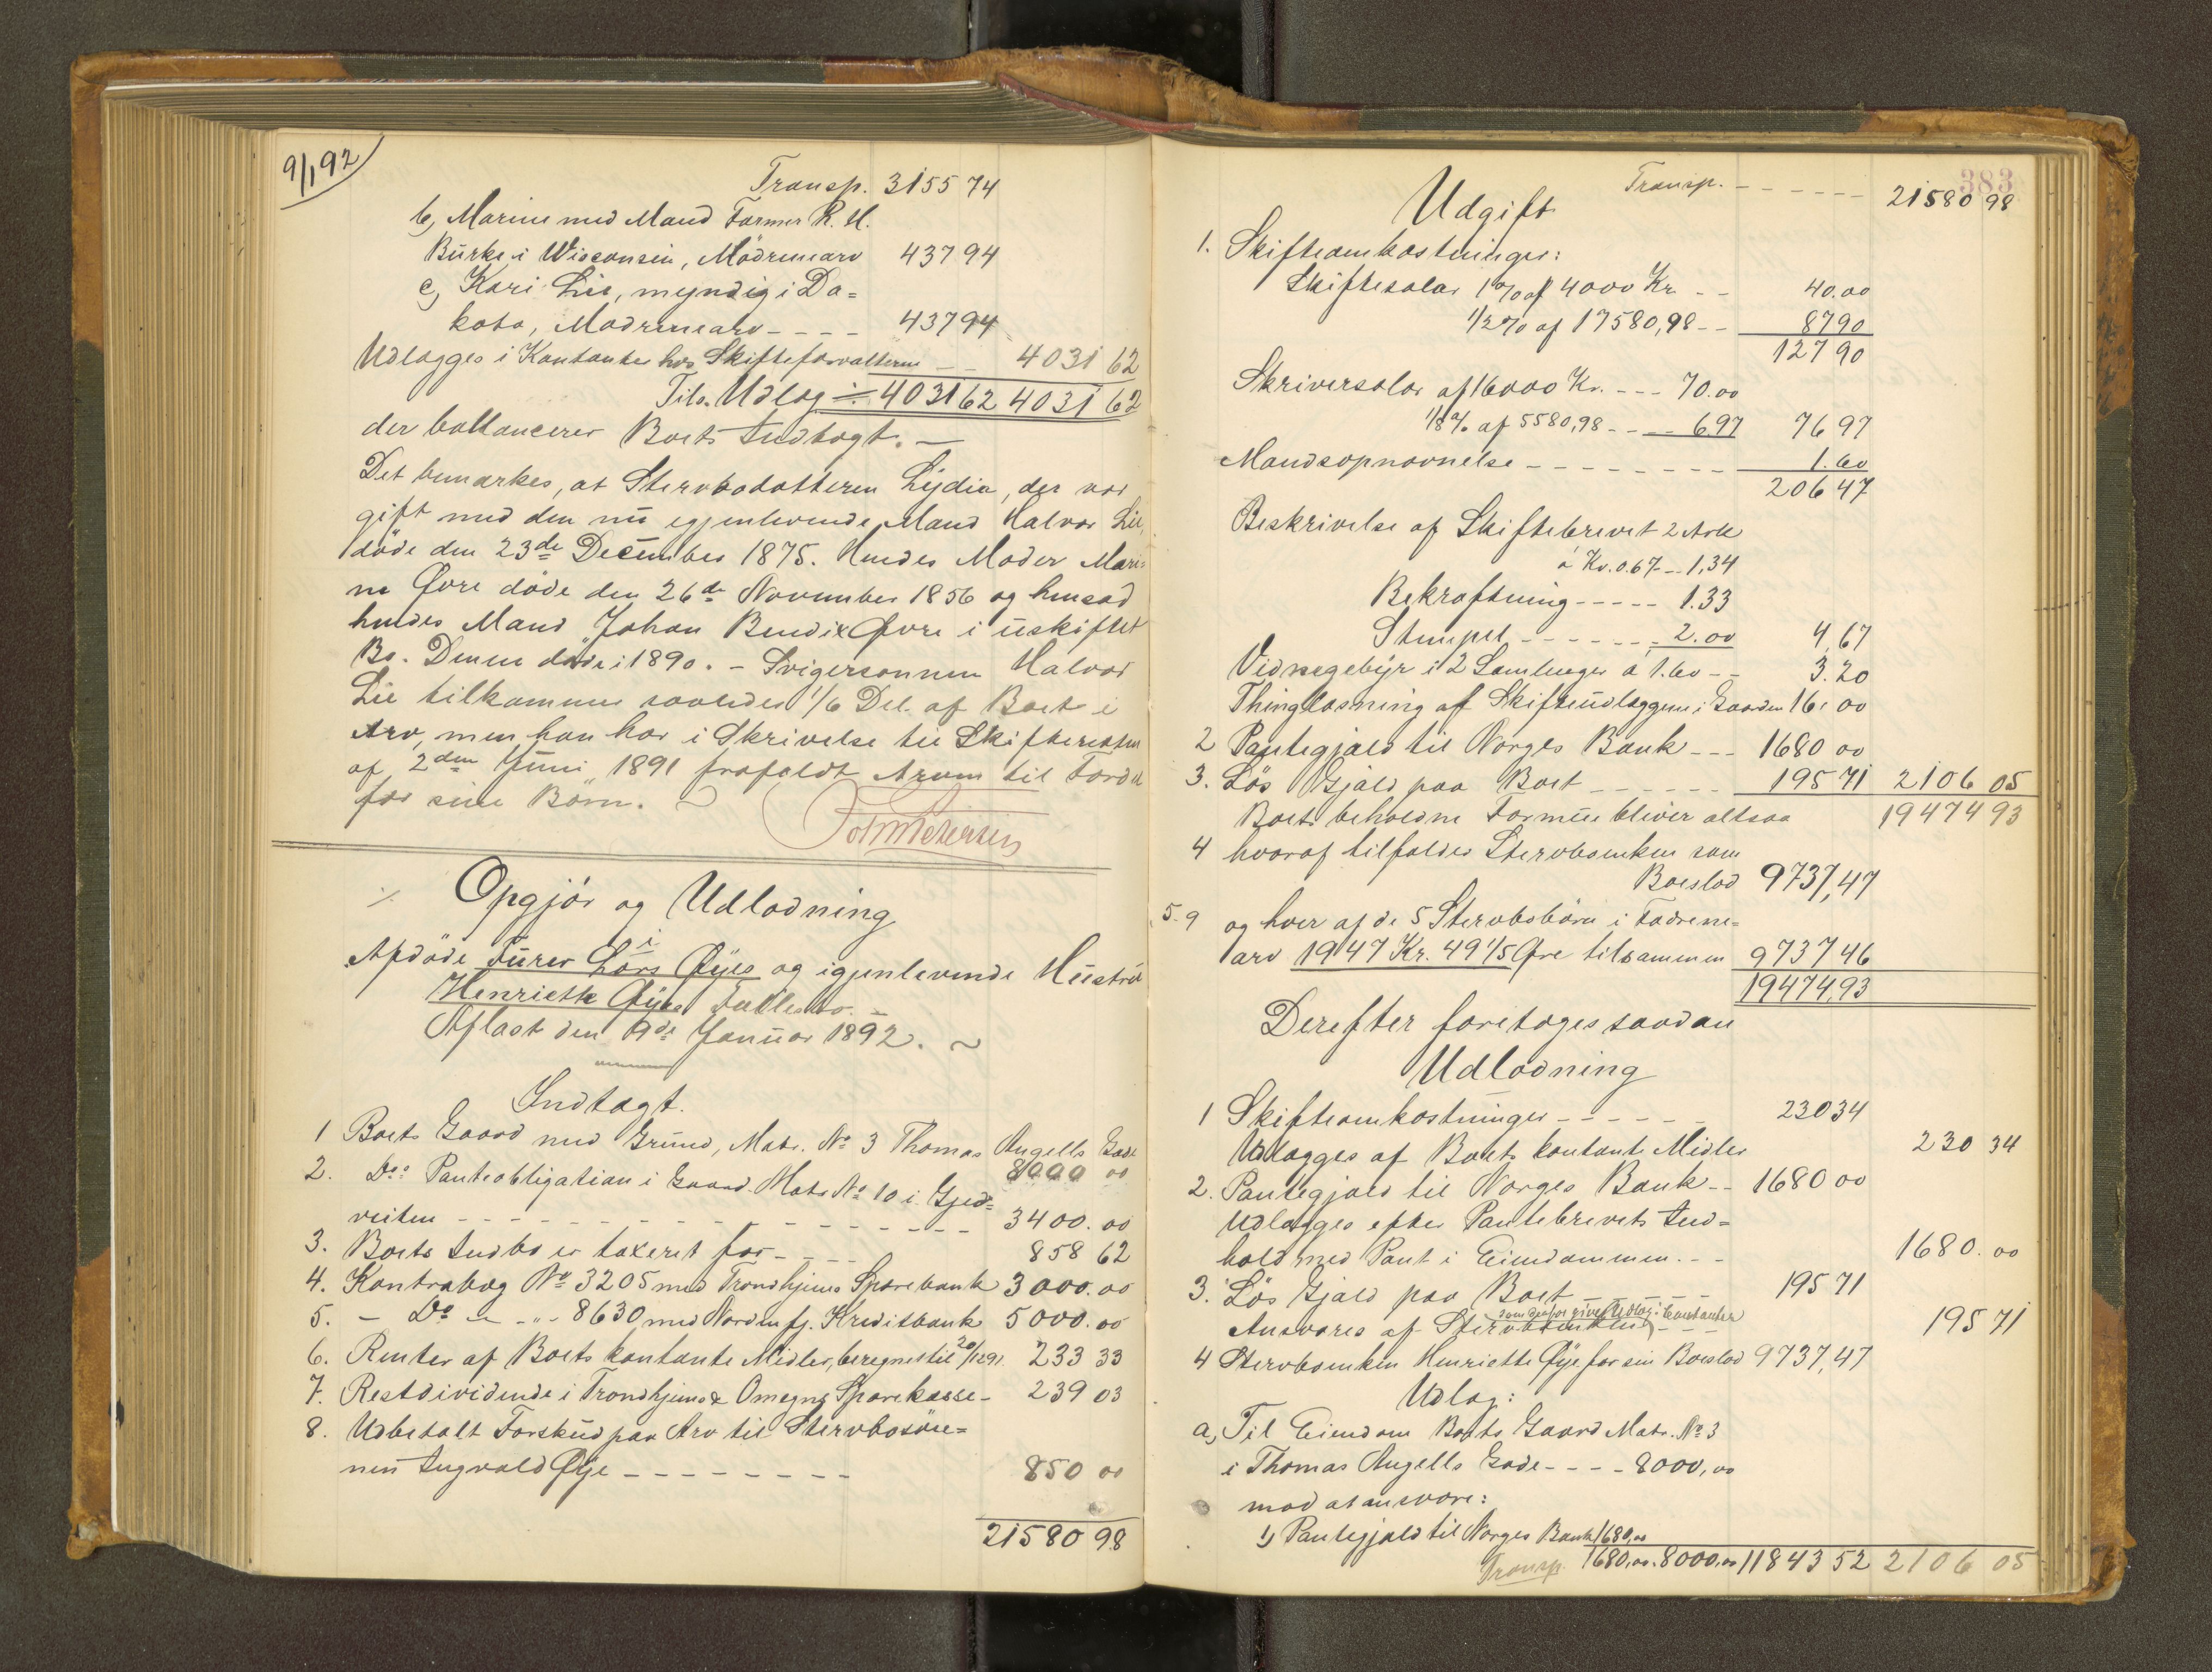 9/1 92
Transp. 3155 74
b, Marine med Mand Farmer R. H.
Burke i Wisconsin, Mödrenearv 437 94
c, Kari Lie, myndig i Da=
kota, Mödrenearv - - - - 437 94
Udlægges i Kontanter hos Skifteforvalteren - - 4031 62
Tils. Udlæg ÷ 4031 62 4031 62
der ballancerer Boets Indtægt. —
Det bemærkes, at Stervbodatteren Lydia, der var
gift med den nu egjenlevende Mand Halvor Lie,
döde den 23de December 1875. Hendes Moder Mari=
ne Øvre döde den 26de November 1856 og hensad
hendes Mand Johan Bendix Øvre i uskiftet
Bo. Denne döde i 1890. - Svigersönnen Halvor
Lie tilkommer saaledes 1/6 Del af Boet i
Arv, men han har i Skrivelse til Skifteretten
af 2den Juni 1891 frafaldt Arven til Fordel
for sine Börn.
Opgjör og Udlodning
i
Afdöde Furer Lars Øyes og igjenlevende Hustru
Henriette Øyes Fællesbo. —
Aflæst den 9de Januar 1892.
Indtægt.
1 Boets Gaard med Grund, Matr. No 3 Thomas Angells Gade
8000 00
2. Do: Panteobligation i Gaard Matr No 10 i Gjed=
veiten - - - - - - - - - 3400.00
3. Boets Indbo er taxeret for - - - 858 62
4. Kontrabog No 3205 med Trondhjems Sparebank 3000.00
5. - Do - " - 8630 med Nordenfj. Kreditbank 5000.00
6. Renter af Boets kontante Midler, beregnet til 20/12 91. 233 33
7. Restdividende i Trondhjems & Omegns Sparekasse - 239 03
8. Udbetalt Forskud paa Arv til Stervbosön=
nen Ingvald Øye - - - - - - - - 850 00
21580 98
383
Transp. - - - - - - 21580 98
Udgift
1. Skifteomkostninger:
Skiftesalær 1% af 4000 Kr. - - 40.00
1/2% af 17580,98 - - 87 90
127 90
Skriversalær af 16000 Kr. - - - 70.00
1/8% af 5580,98 - - - 6.97 76 97
Mandsopnævnelse - - - - - - - - 1.60
206 47
Beskrivelse af Skiftebrevet 2 Ark
á Kr. 0.67 - - 1,34
Bekræftning - - - - - 1.33
Stempel - - - - - - - 2.00 4,67
Vidnegebyr i 2 Samlinger á 1.60 - - 3.20
Thinglæsning af Skifteudlæggene i Gaarden 16,00
2 Pantegjæld til Norges Bank - - - 1680 00
3. Lös Gjæld paa Boet - - - - - - 195 71 2106 05
Boets beholdne Formue bliver altsaa 19474 93
4 hvoraf tilfalder Stervboenken som
Boeslod 9737,47
5-9 og hver af de 5 Stervbobörn i Fædrene=
arv 1947 Kr. 49 1/5 Øre tilsammen 9737 46
19474,93
Derefter foretages saadan
Udlodning
1 Skifteomkostninger - - - - - 230 34
Udlægges af Boets kontante Midler 230 34
2. Pantegjæld til Norges Bank - - 1680 00
Udlægges efter Pantebrevets Ind=
hold med Pant i Eiendommen. - - 1680.00
3. Lös Gjæld paa Boet - - - - - 195 71
som derfor gives Udlæg i Contanter
Ansvares af Stervboenken - - - 195 71
4 Stervboenken Henriette Øye for sin Boeslod 9737,47
Udlæg:
a, Til Eiendom Boets Gaard Matr. No 3
i Thomas Angells Gade - - - - 8000,00
mod at ansvare:
1) Pantegjæld til Norges Bank 1680,00
Transp. 1680,00. 8000,00 11843 52 2106 05